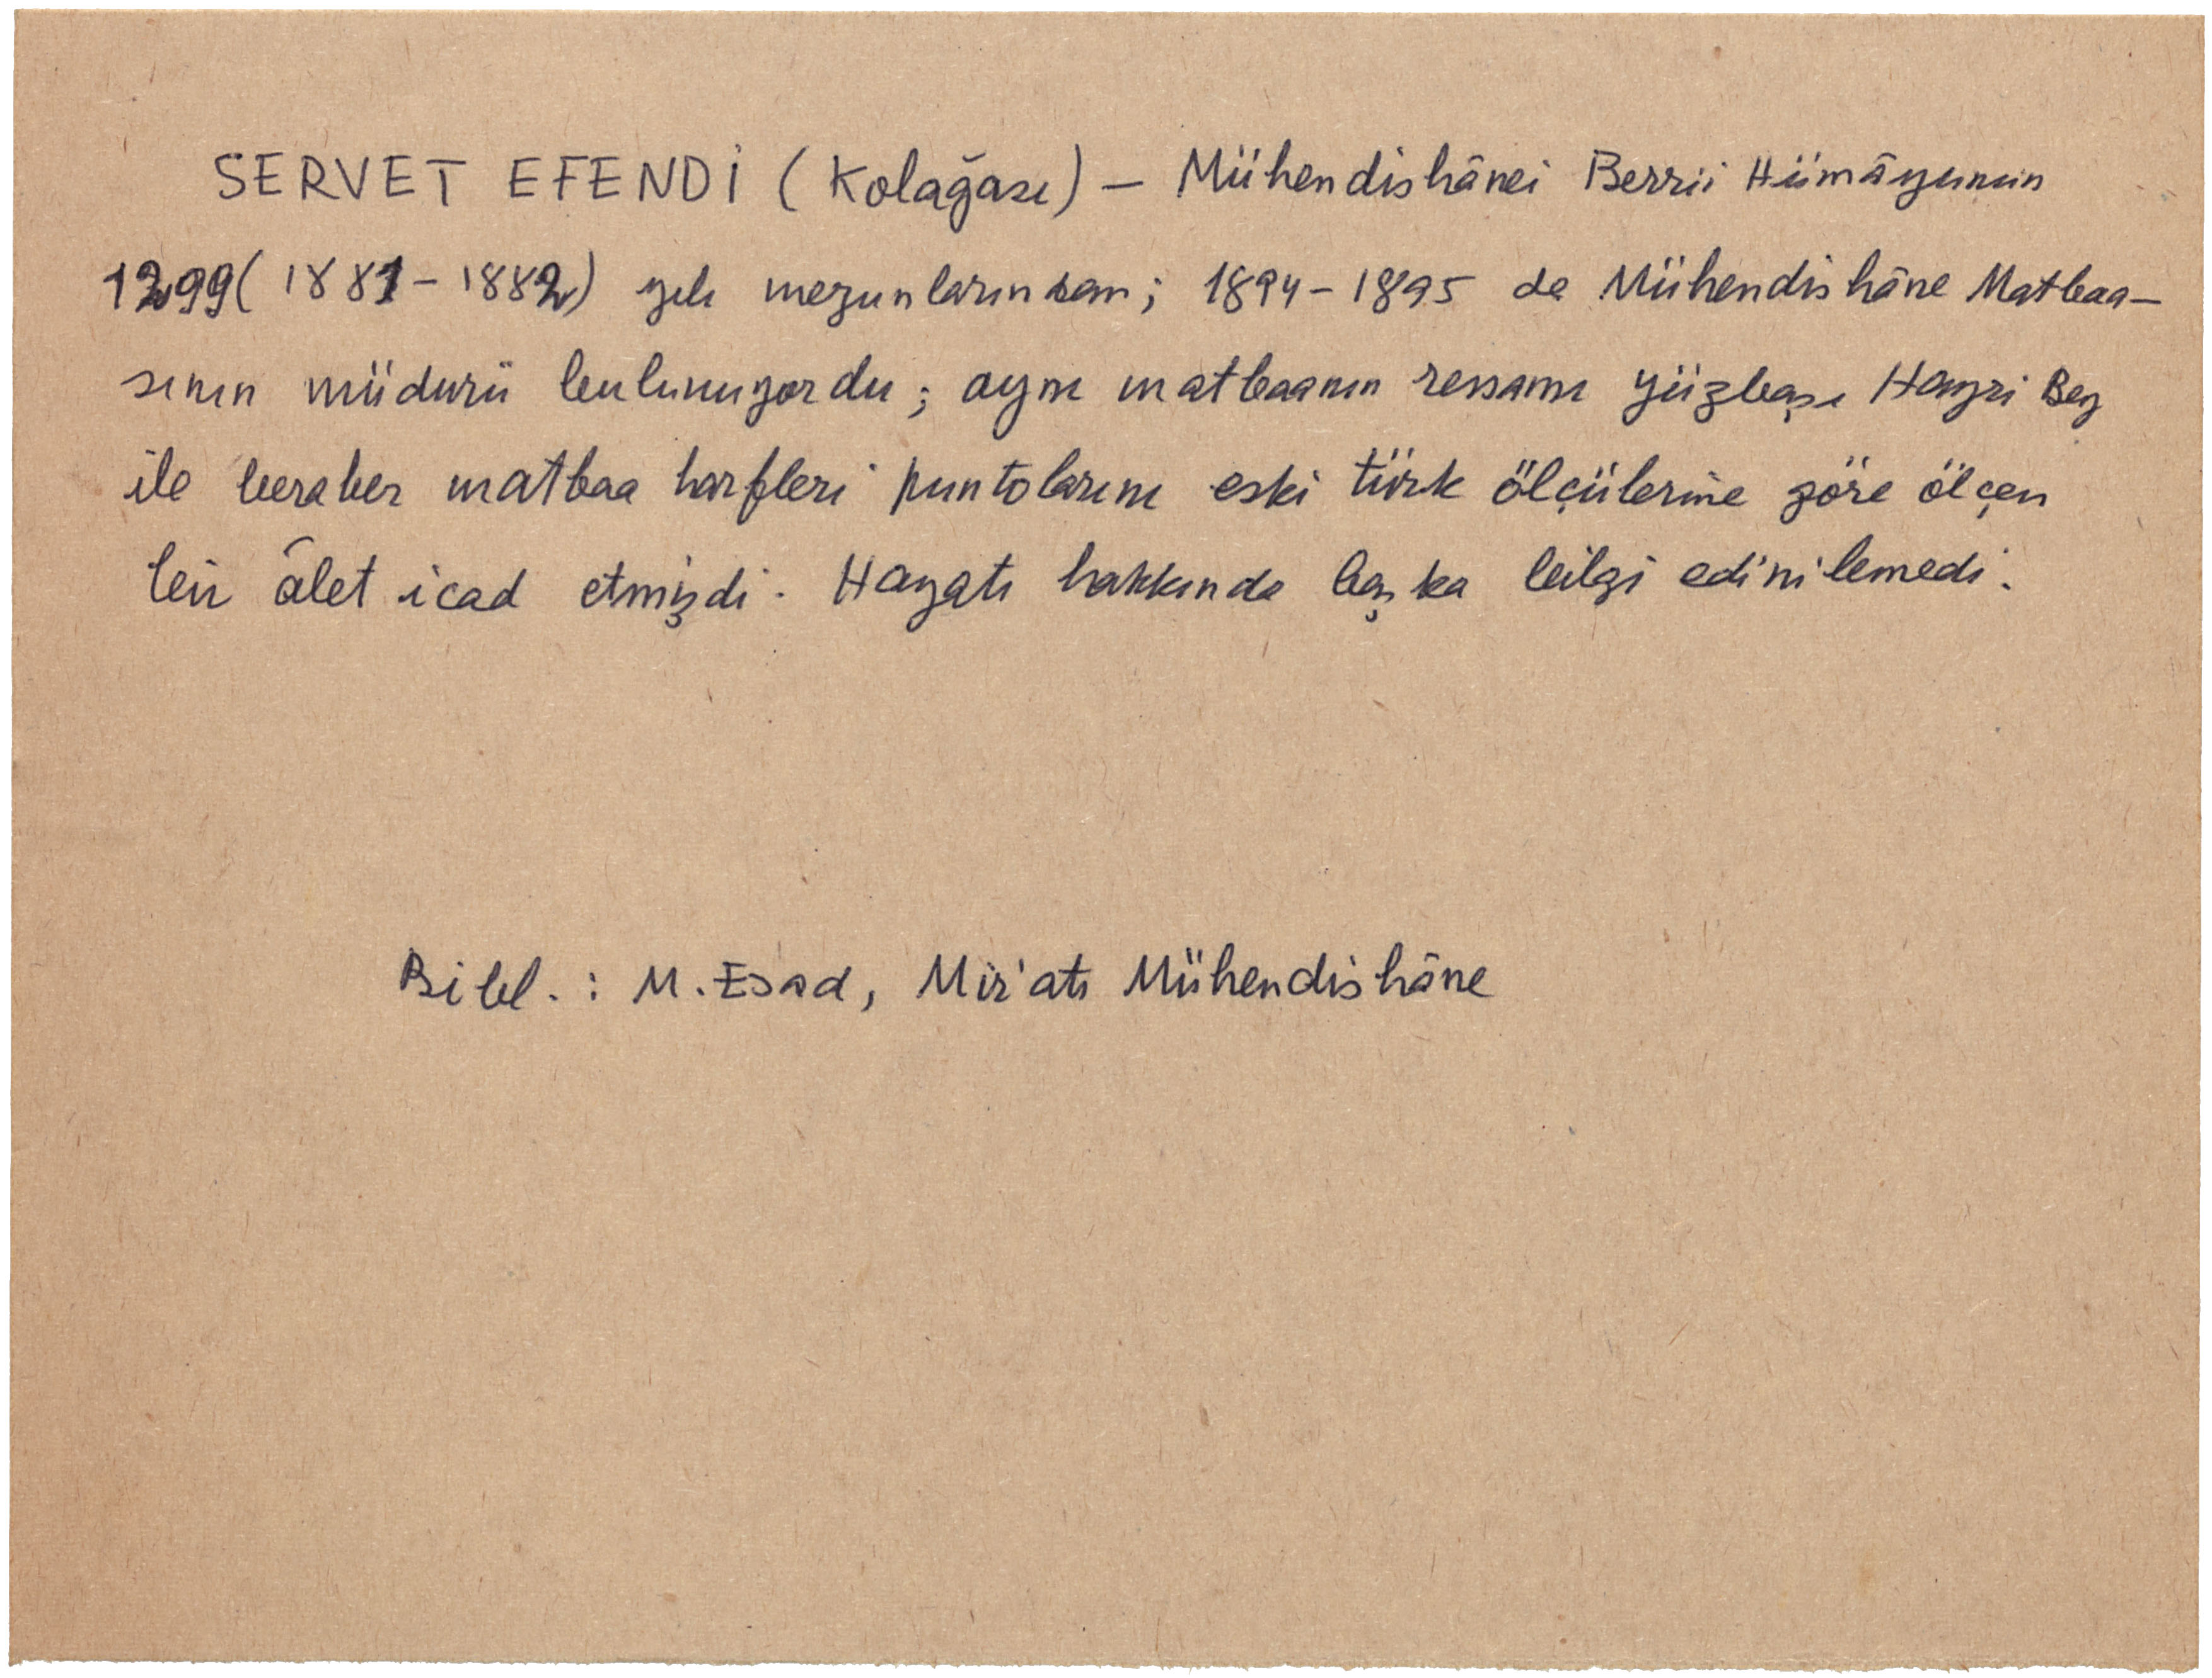 SERVET EFENDİ (Kolağası) — Mühendishânei Berrii Hümâyunun
1299 (1881-1882) yılı mezunlarından; 1894-1895 de Mühendishâne Matbaa-
sının müdürü bulunuyordu; aynı matbaanın ressamı yüzbaşı Hayri Bey
ile beraber matbaa harfleri puntolarını eski türk ölçülerine göre ölçen
bir âlet icad etmişdi. Hayatı hakkında başka bilgi edinilemedi.
Bibl. : M. Esad, Mir'atı Mühendishâne